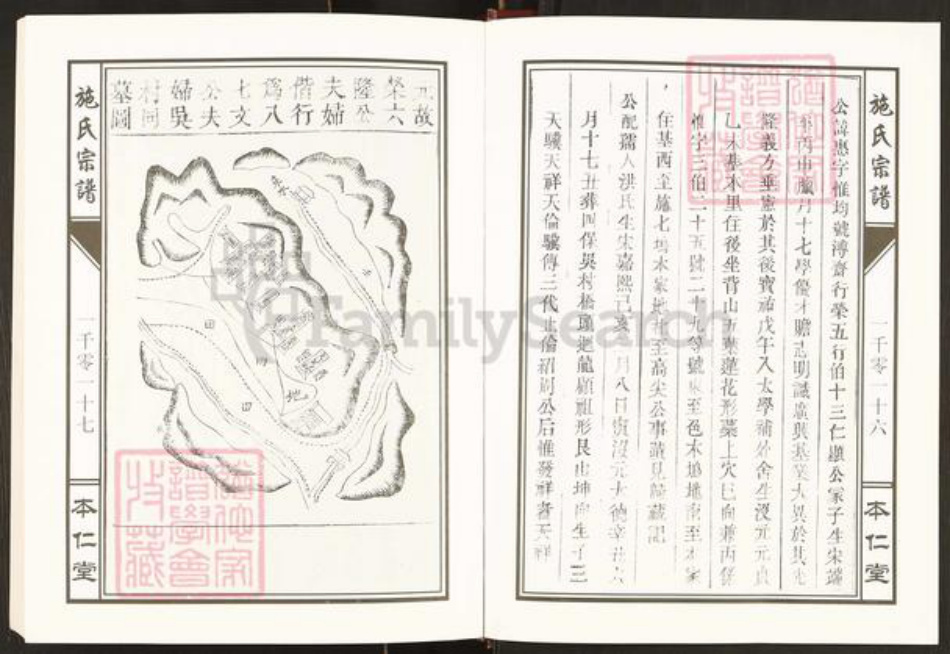 施氏宗譜
一千零一十六
本仁堂
公諱惠字惟均號溥齋行榮五行伯十三仁顯公冢子生宋端
丙申臘月十七學優才贍志明識廣興基業大異於其先
隆義方垂憲於其後寶祐戊午入太學補外舍生沒元元貞
乙未葬本里住後坐背山五葉蓮花形葉上穴巳向兼丙係
惟字三伯二十五號二十九等號東至邑木塢地南至本家
住基西至施七塢本家地北至高尖公事蹟見
公配孺人洪氏生宋嘉熙己亥 月八日寅沒元大德辛丑六
月十七丑葬四保吳村橋瓊迴龍顧祖形艮山坤向生子三
天驥天祥天倫驥傳三代止倫紹嗣公后惟發祥者天祥
施氏宗譜
一千零一十七
本仁堂
元故
榮六
隆公
夫婦
偕行
爲八
七文
公夫
婦吳
村同
墓圖
田
田
田
地
FamilySearch